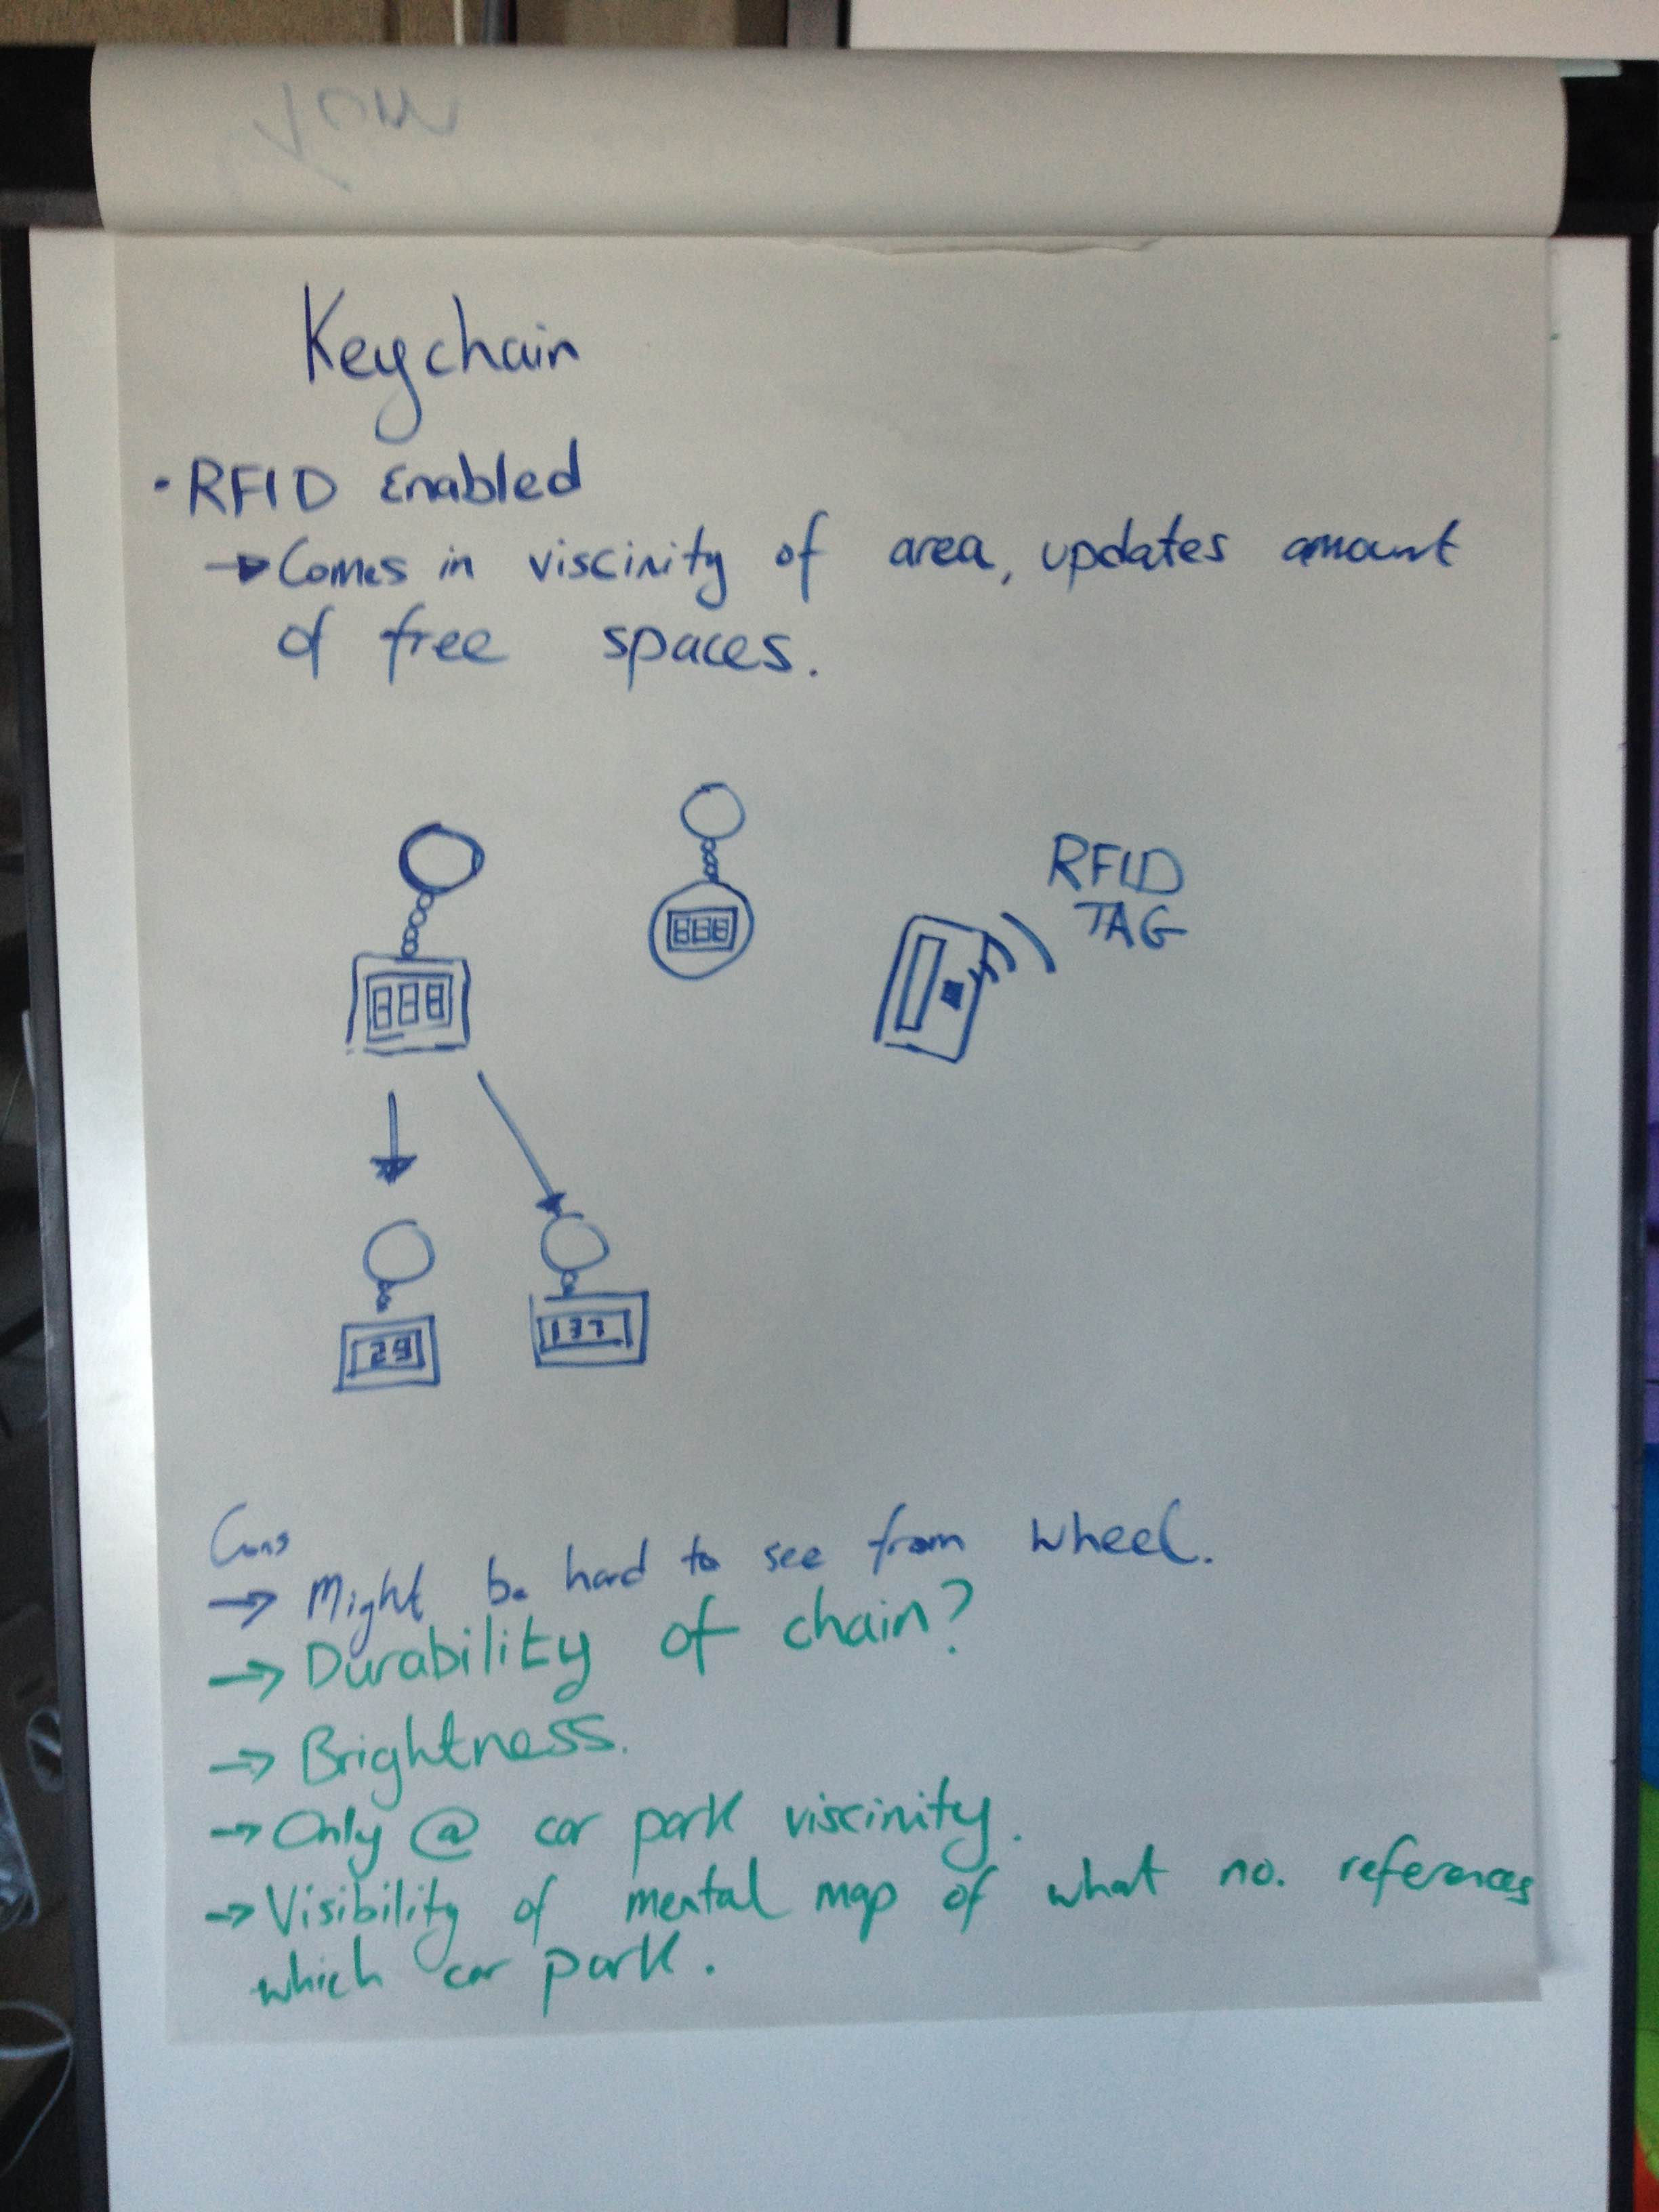 Keychain
• RFID Enabled
→ Comes in viscinity of area, updates amount
of free spaces.
888
888
RFID
TAG
29
137
Cons
→ Might be hard to see from wheel.
→ Durability of chain?
→ Brightness.
→ Only @ car park viscinity.
→ Visibility of mental map of what no. references
which car park.